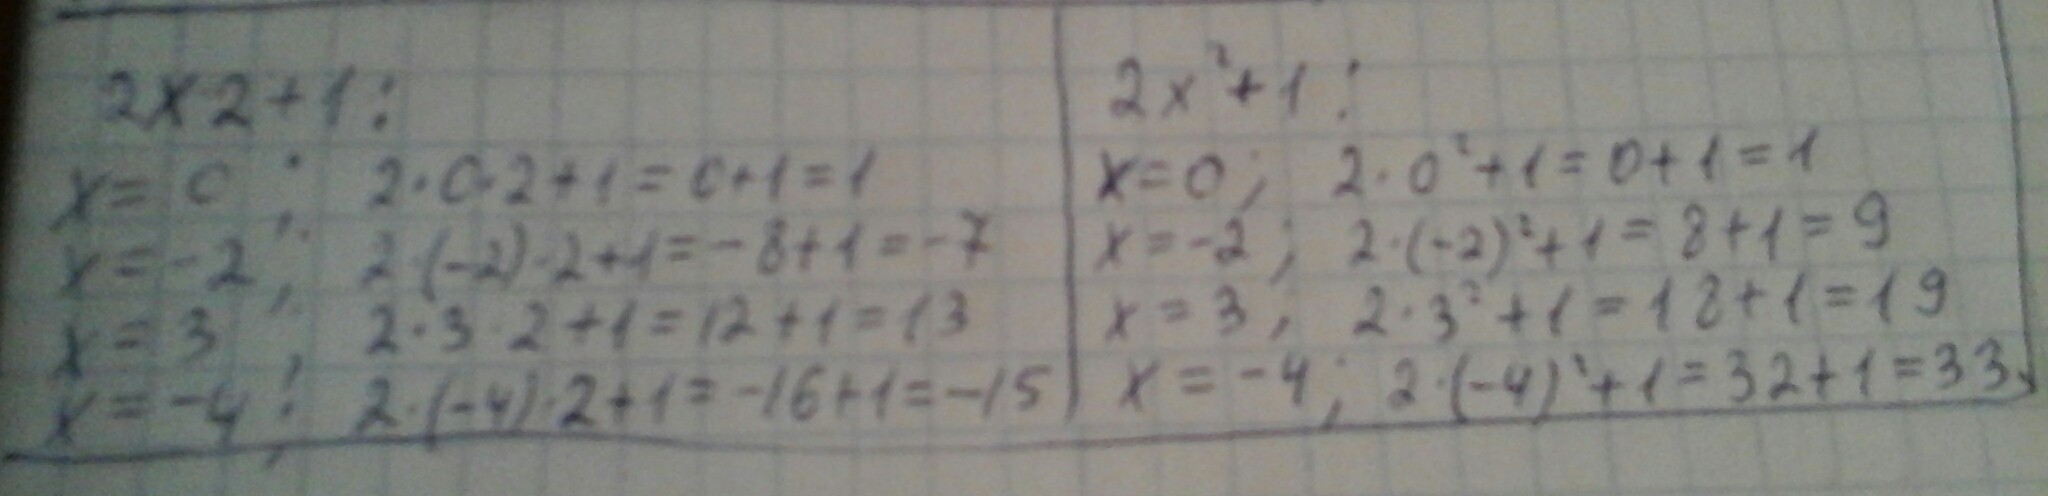 2x2+1:
x=0; 2·0·2+1=0+1=1
x=-2; 2·(-2)·2+1=-8+1=-7
x=3; 2·3·2+1=12+1=13
x=-4; 2·(-4)·2+1=-16+1=-15
2x²+1:
x=0; 2·0²+1=0+1=1
x=-2; 2·(-2)²+1=8+1=9
x=3; 2·3²+1=18+1=19
x=-4; 2·(-4)²+1=32+1=33